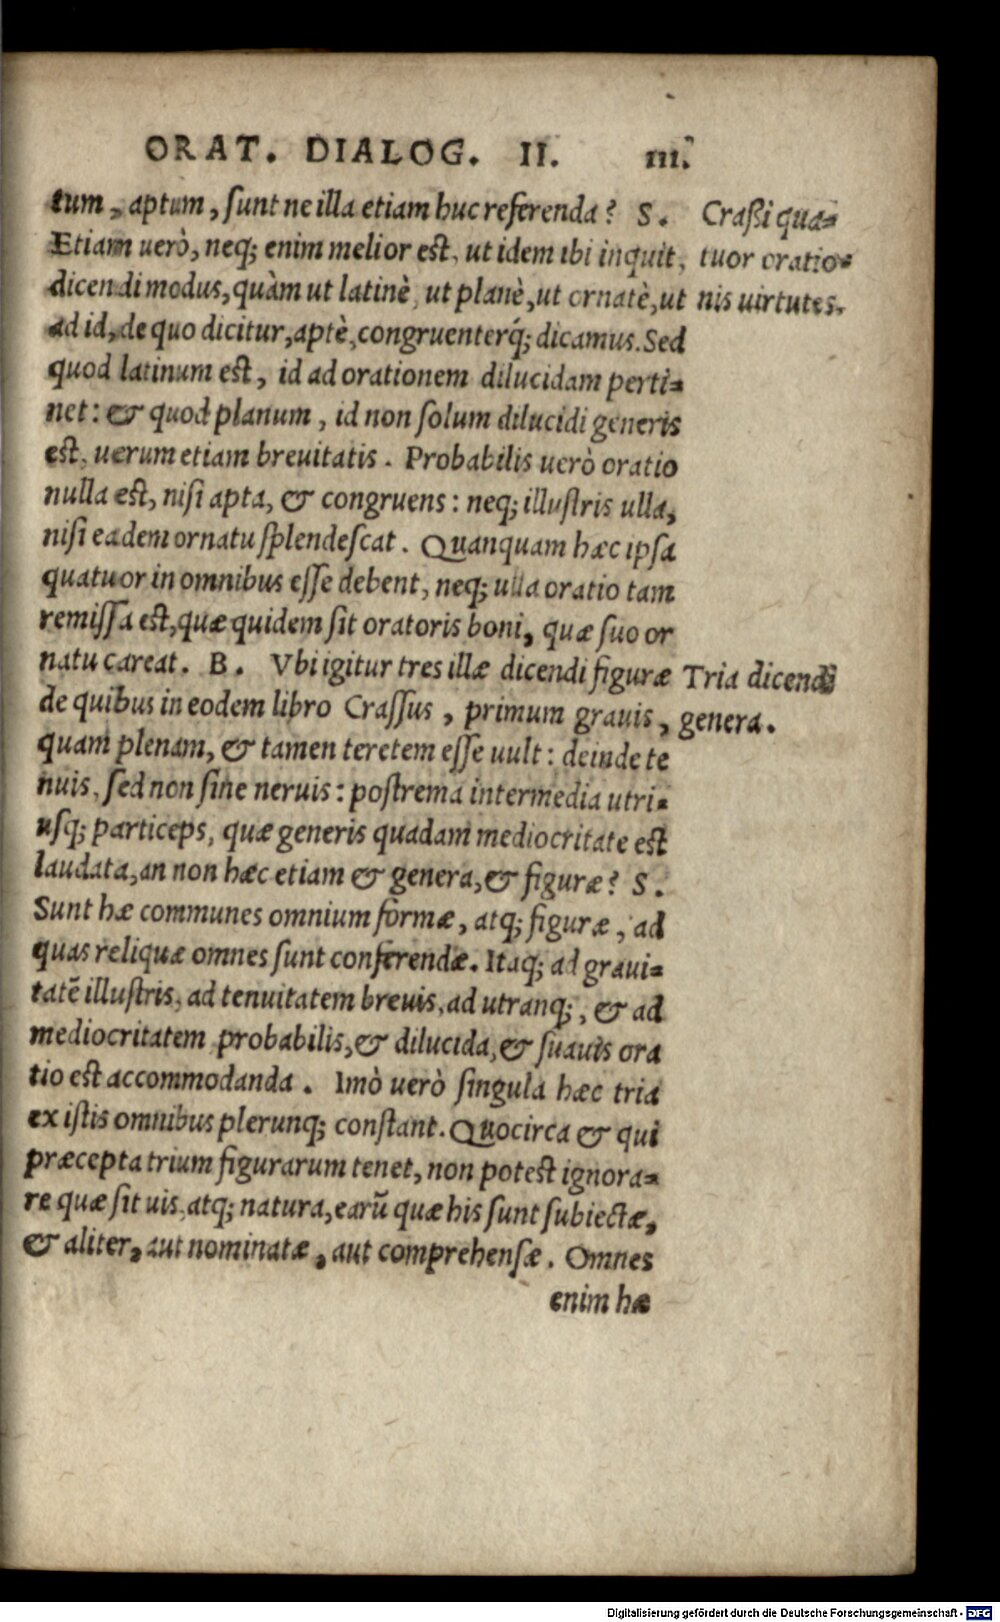 ORAT. DIALOG. II. III.
tum, aptum, sunt ne illa etiam huc referenda? S.
Etiam uerò, neq; enim melior est, ut idem ibi inquit,
dicendi modus, quàm ut latinè, ut planè, ut ornatè, ut
ad id, de quo dicitur, aptè, congruenterq́; dicamus. Sed
quod latinum est, id ad orationem dilucidam perti-
net: & quod planum, id non solum dilucidi generis
est, uerum etiam breuitatis. Probabilis uerò oratio
nulla est, nisi apta, & congruens: neq; illustris ulla,
nisi eadem ornatu splendescat. Quanquam hæc ipsa
quatuor in omnibus esse debent, neq; ulla oratio tam
remissa est, quæ quidem sit oratoris boni, quæ suo or
natu careat. B. Vbi igitur tres illæ dicendi figuræ
de quibus in eodem libro Crassus, primum grauis,
quam plenam, & tamen teretem esse uult: deinde te
nuis, sed non sine neruis: postrema intermedia utri-
usq; particeps, quæ generis quadam mediocritate est
laudata, an non hæc etiam & genera, & figuræ? S.
Sunt hæ communes omnium formæ, atq; figuræ, ad
quas reliquæ omnes sunt conferendæ. Itaq; ad graui-
tatē illustris, ad tenuitatem breuis, ad utranq;, & ad
mediocritatem probabilis, & dilucida, & suauis ora
tio est accommodanda. Imò uerò singula hæc tria
ex istis omnibus plerunq; constant. Quocirca & qui
præcepta trium figurarum tenet, non potest ignora-
re quæ sit uis, atq; natura, earū quæ his sunt subiectæ,
& aliter, aut nominatæ, aut comprehensæ. Omnes
enim hæ
Craßi qua-
tuor oratio-
nis uirtutes.
Tria dicendi
genera.
Digitalisierung gefördert durch die Deutsche Forschungsgemeinschaft - DFG